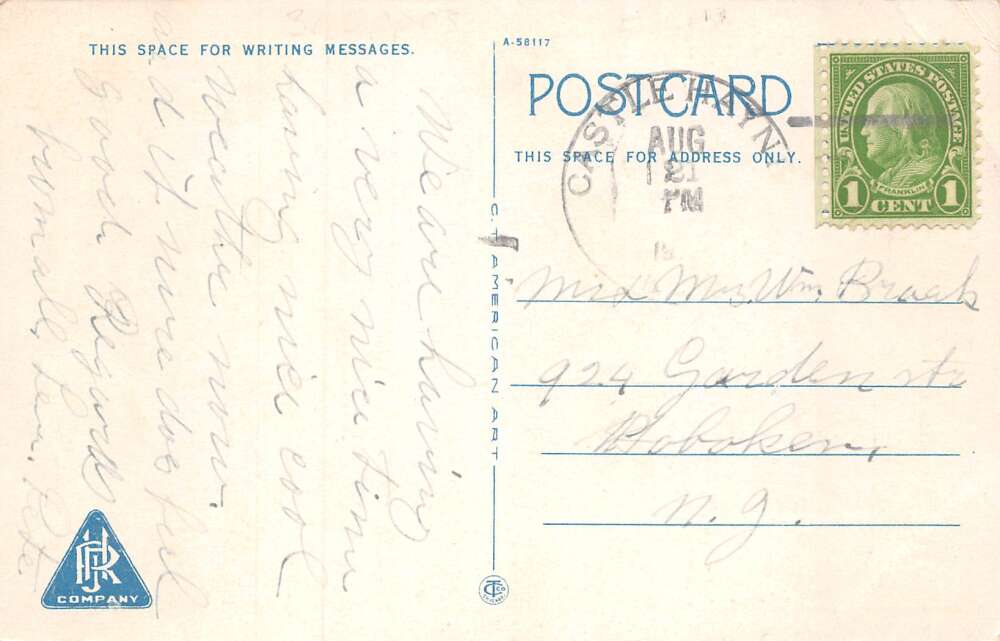 THIS SPACE FOR WRITING MESSAGES.
We are having
a very nice time
having nice cool
weathe now.
and if mure does feel
good Regards
from all,
A-58117
POSTCARD
THIS SPACE FOR ADDRESS ONLY.
CASTLE HAYN
AUG
21
PM
UNITED STATES POSTAGE
FRANKLIN
1 CENT 1
Mr & Mrs. Wm. Braek
924 Garden St.
Hoboken,
N. J.
C. T. AMERICAN ART
HJR
COMPANY
CT CO
CHICAGO